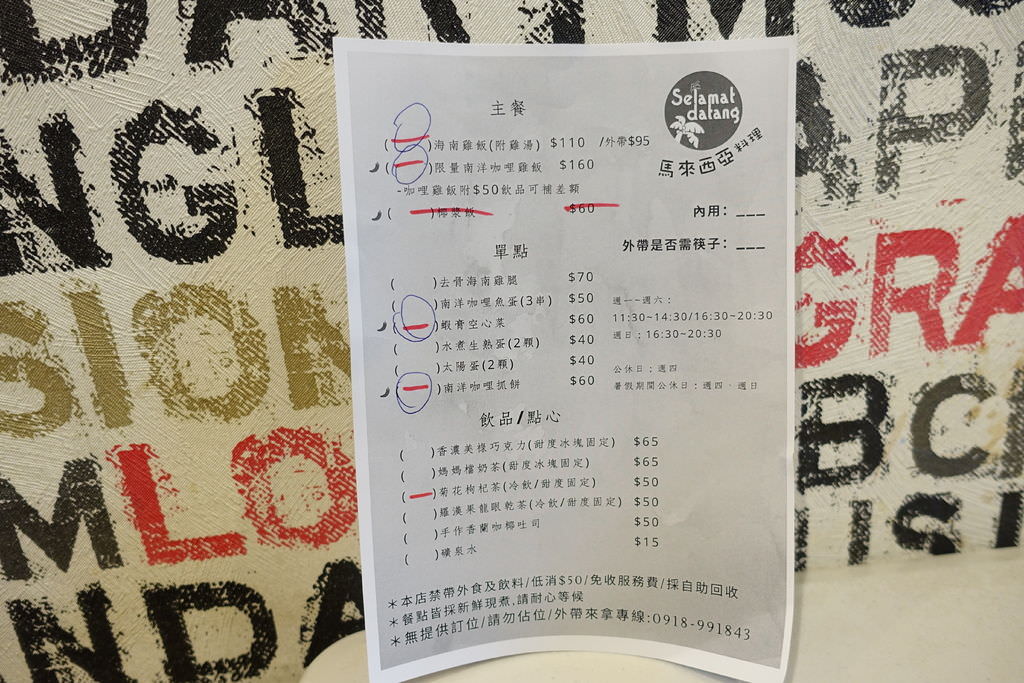 Selamat
datang
馬來西亞料理
主餐
( )海南雞飯(附雞湯) $110 /外帶$95
( )限量南洋咖哩雞飯 $160
-咖哩雞飯附$50飲品可補差額
( )椰漿飯 $60
內用：___
外帶是否需筷子：___
單點
( )去骨海南雞腿 $70
( )南洋咖哩魚蛋(3串) $50
( )蝦膏空心菜 $60
( )水煮生熟蛋(2顆) $40
( )太陽蛋(2顆) $40
( )南洋咖哩抓餅 $60
週一~週六：
11:30~14:30/16:30~20:30
週日：16:30~20:30
公休日：週四
暑假期間公休日：週四、週日
飲品/點心
( )香濃美祿巧克力(甜度冰塊固定) $65
( )媽媽檔奶茶(甜度冰塊固定) $65
( )菊花枸杞茶(冷飲/甜度固定) $50
( )羅漢果龍眼乾茶(冷飲/甜度固定) $50
( )手作香蘭咖椰吐司 $50
( )礦泉水 $15
＊本店禁帶外食及飲料/低消$50/免收服務費/採自助回收
＊餐點皆採新鮮現煮,請耐心等候
＊無提供訂位/請勿佔位/外帶來拿專線:0918-991843
NGL
SION
MLO
NDA
APP
GRA
BC